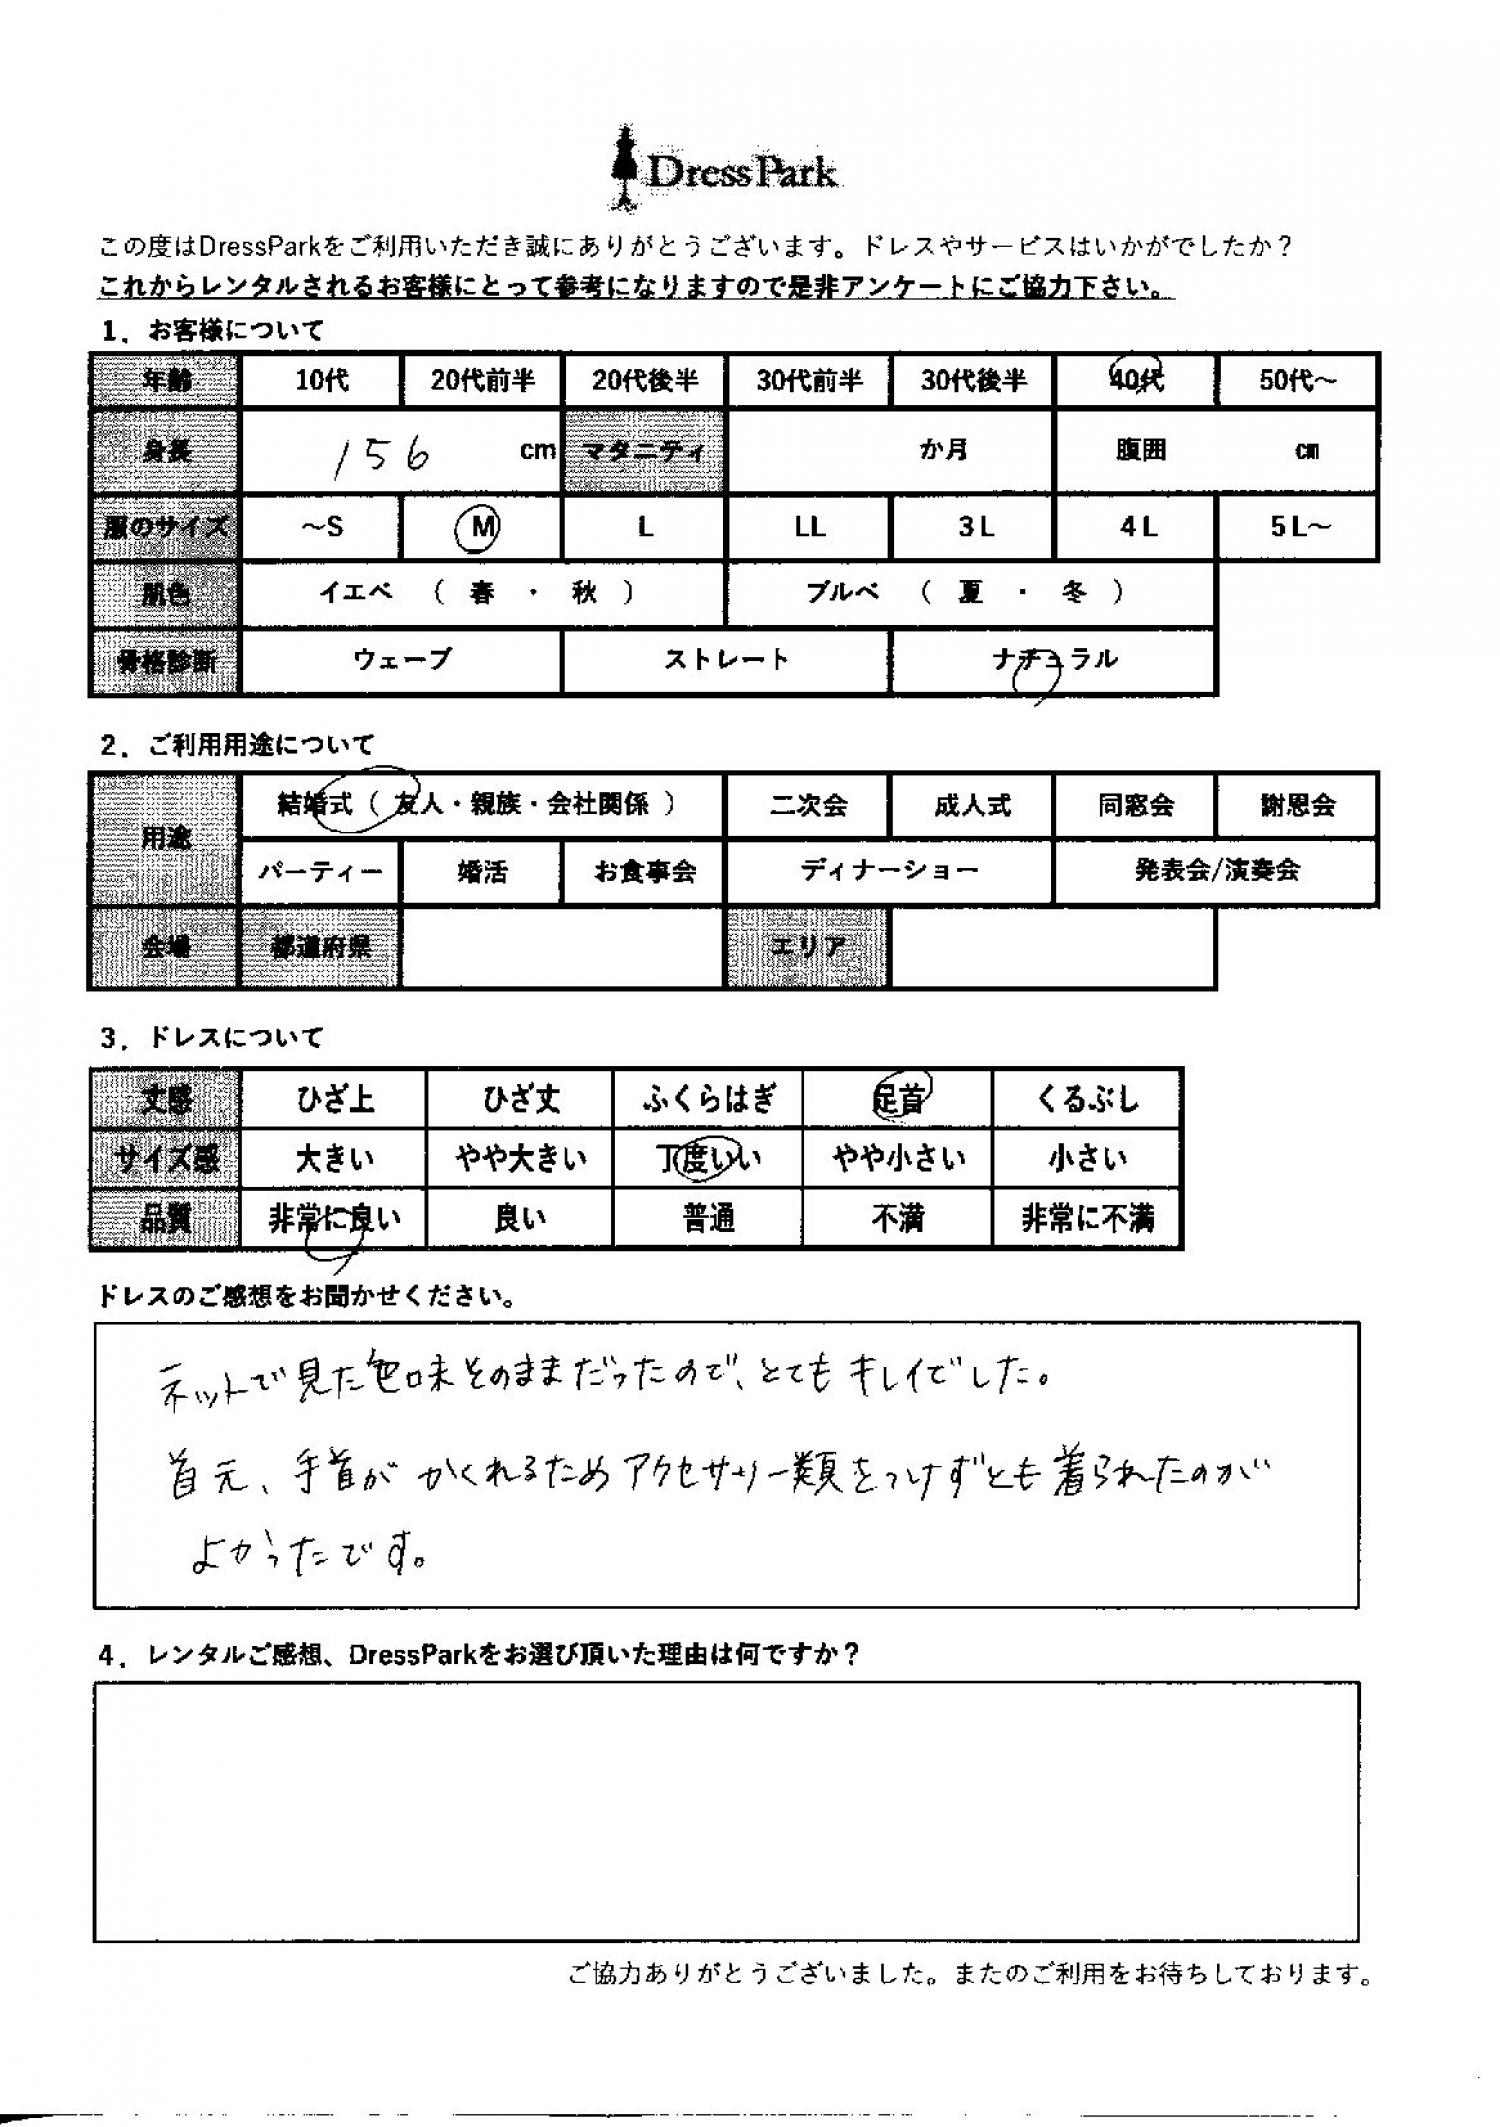 DressPark
この度はDressParkをご利用いただき誠にありがとうございます。ドレスやサービスはいかがでしたか？
これからレンタルされるお客様にとって参考になりますので是非アンケートにご協力下さい。
1．お客様について
年齢 10代 20代前半 20代後半 30代前半 30代後半 40代 50代～
身長 156 cm マタニティ か月 腹囲 cm
服のサイズ ～S M L LL 3L 4L 5L～
肌色 イエベ （ 春 ・ 秋 ） ブルベ （ 夏 ・ 冬 ）
骨格診断 ウェーブ ストレート ナチュラル
2．ご利用用途について
用途 結婚式（ 友人・親族・会社関係 ） 二次会 成人式 同窓会 謝恩会
パーティー 婚活 お食事会 ディナーショー 発表会/演奏会
会場 都道府県 エリア
3．ドレスについて
丈感 ひざ上 ひざ丈 ふくらはぎ 足首 くるぶし
サイズ感 大きい やや大きい 丁度いい やや小さい 小さい
品質 非常に良い 良い 普通 不満 非常に不満
ドレスのご感想をお聞かせください。
ネットで見た色味そのままだったので、とてもキレイでした。
首元、手首がかくれるためアクセサリー類をつけずとも着られたのが
よかったです。
4．レンタルご感想、DressParkをお選び頂いた理由は何ですか？
ご協力ありがとうございました。またのご利用をお待ちしております。